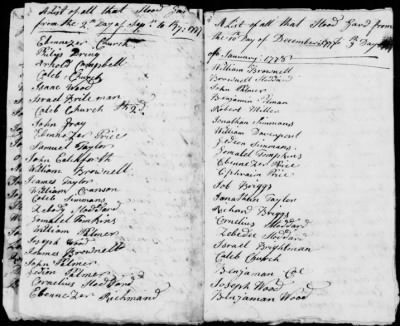 A List of all that Stood Gard
from the 2d Day of Sepr to 1777
Ebenezer Church
Rily Dring
Arnold Campbell
Caleb Church
Isaac Wood
Israel Briteman
Caleb Church 2d
John Gray
Ebenezer Price
Samuel Taylor
John
William Brownell
James Taylor
William Cranson
Caleb Simmons
Zebedy Stoddard
Lemalel Tomkins
William Palmer
Joseph Wood
James Brownell
John Palmer
Palmer
Cornelius Stoddard
Ebenezer Richmand
A List of all that Stood Gard from
the 10 Day of December 1777 to Day
of January: 1778
William Brownell
Brownell Stoddard
John Palmer
Benjamin Pitman
Robert Miller
Jonathan Simmons
William Davenport
Gedeon Simmons
Lemalel Tompkins
Ebenezer Price
Ephraim Price
Job Briggs
Jonathan Taylor
Richard Briggs
Cornelius Stoddard
Zebedee Stoddard
Israel Brightman
Caleb Church
Benjamin Coe
Joseph Wood
Benjaman Wood